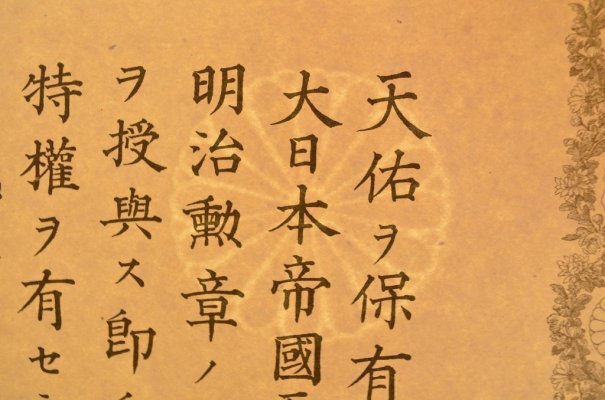 天佑ヲ保有
大日本帝國
明治勳章ノ
ヲ授與ス卽
特權ヲ有セ